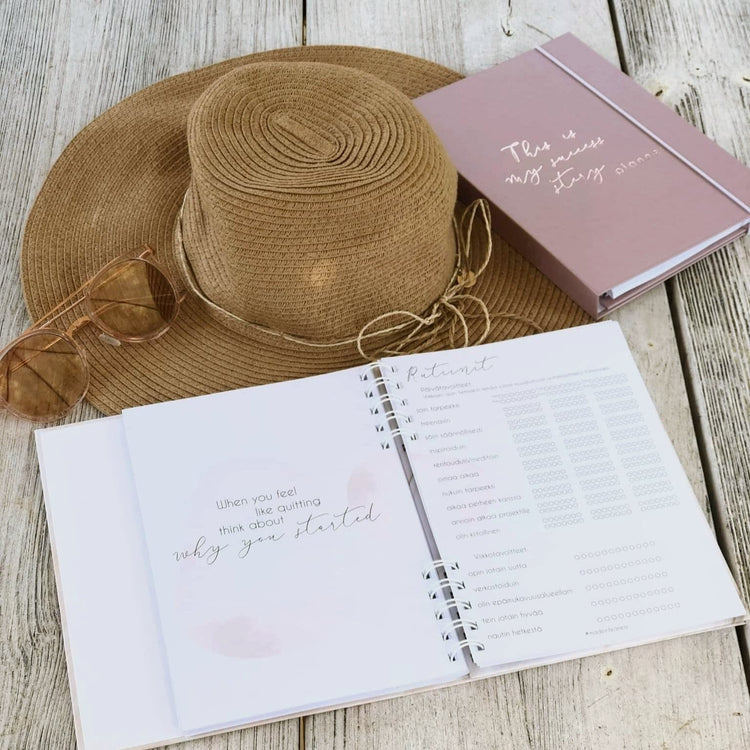 This is
my success
story planner
When you feel
like quitting
think about
why you started
Rutiinit
Päivätavoitteet
söin tarpeeksi
treenasin
söin säännöllisesti
inspiroiduin
rentouduin/meditoin
omaa aikaa
nukuin tarpeeksi
aikaa perheen kanssa
annoin aikaa projektille
olin kiitollinen
Viikkotavoitteet
opin jotain uutta
verkostoiduin
olin epämukavuusalueellani
tein jotain hyvää
nautin hetkestä